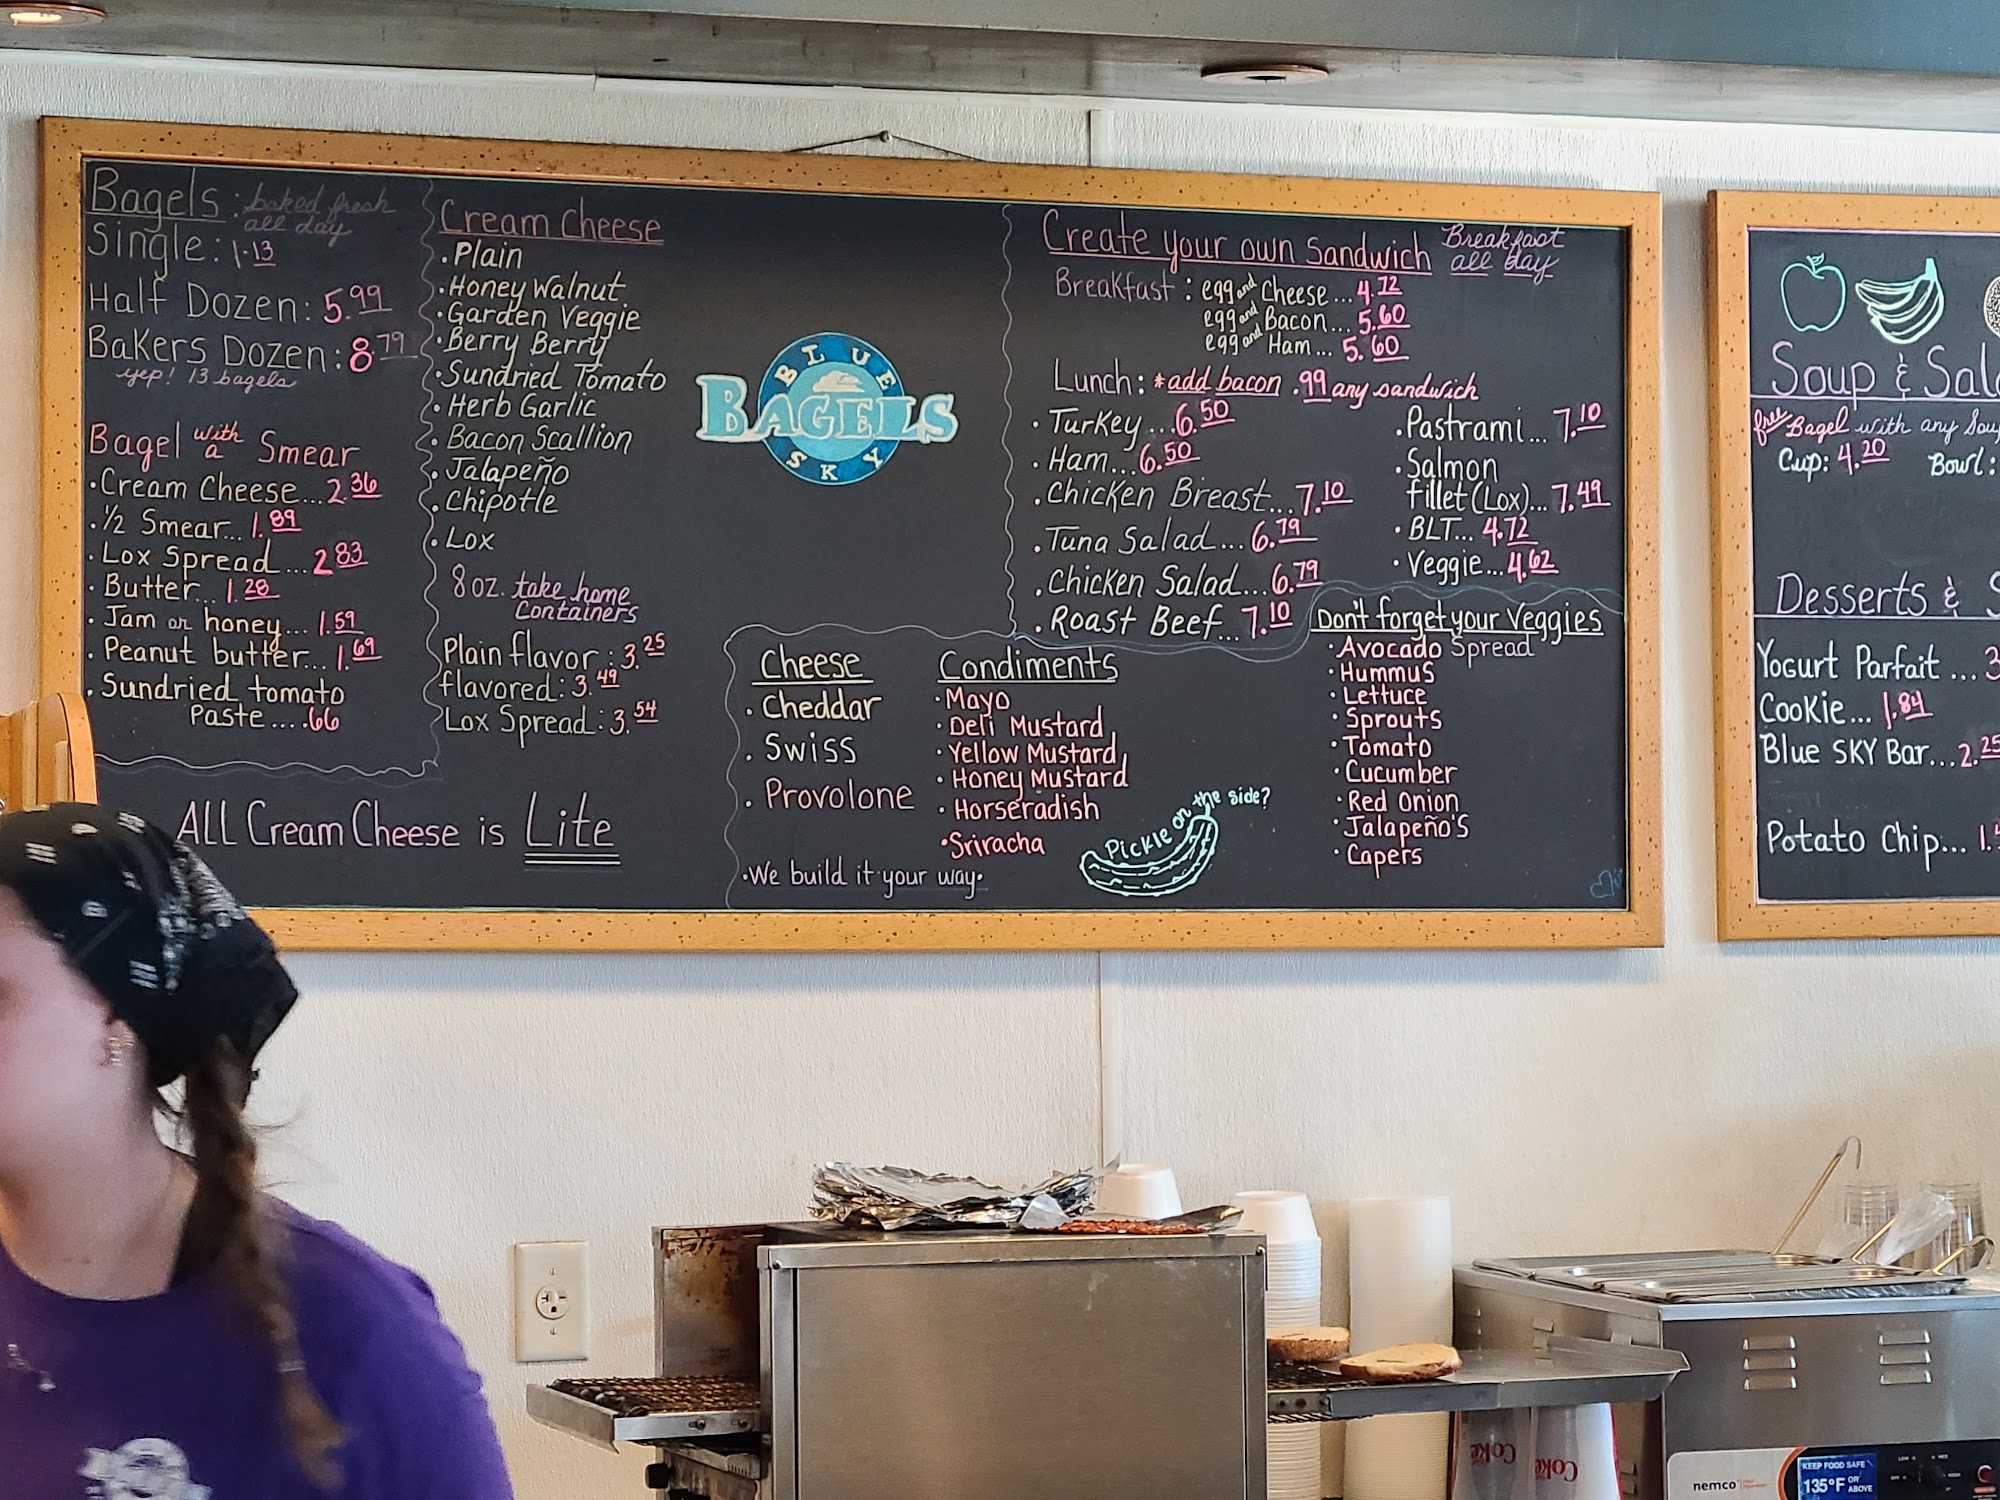 Bagels: baked fresh
all day
Single: 1.13
Half Dozen: 5.99
Bakers Dozen: 8.79
yep! 13 bagels
Bagel with a Smear
• Cream Cheese...2.36
• ½ Smear... 1.89
• Lox Spread ...2.83
• Butter... 1.28
• Jam or honey... 1.59
• Peanut butter... 1.69
• Sundried tomato
Paste .....66
ALL Cream Cheese is Lite
Cream Cheese
• Plain
• Honey Walnut
• Garden Veggie
• Berry Berry
• Sundried Tomato
• Herb Garlic
• Bacon Scallion
• Jalapeño
• Chipotle
• Lox
8 oz. take home
containers
Plain flavor: 3.25
flavored: 3.49
Lox Spread: 3.54
BLUE
BAGELS
SKY
Create your own Sandwich Breakfast
all day
Breakfast: egg and Cheese... 4.72
egg and Bacon... 5.60
egg and Ham... 5.60
Lunch: *add bacon .99 any sandwich
• Turkey ...6.50
• Ham...6.50
• Chicken Breast... 7.10
• Tuna Salad... 6.79
• Chicken Salad... 6.79
• Roast Beef... 7.10
• Pastrami... 7.10
• Salmon
fillet (Lox)... 7.49
• BLT... 4.72
• Veggie... 4.62
Cheese
• Cheddar
• Swiss
• Provolone
Condiments
• Mayo
• Deli Mustard
• Yellow Mustard
• Honey Mustard
• Horseradish
• Sriracha
• We build it your way •
Pickle on the side?
Don't forget your Veggies
• Avocado Spread
• Hummus
• Lettuce
• Sprouts
• Tomato
• Cucumber
• Red Onion
• Jalapeño's
• Capers
Soup &
free Bagel with any
Cup: 4.20 Bowl:
Desserts &
Yogurt Parfait ... 3
Cookie... 1.84
Blue SKY Bar... 2.25
Potato Chip... 1.
Coke
Coke
nemco
KEEP FOOD SAFE
135°F OR
ABOVE